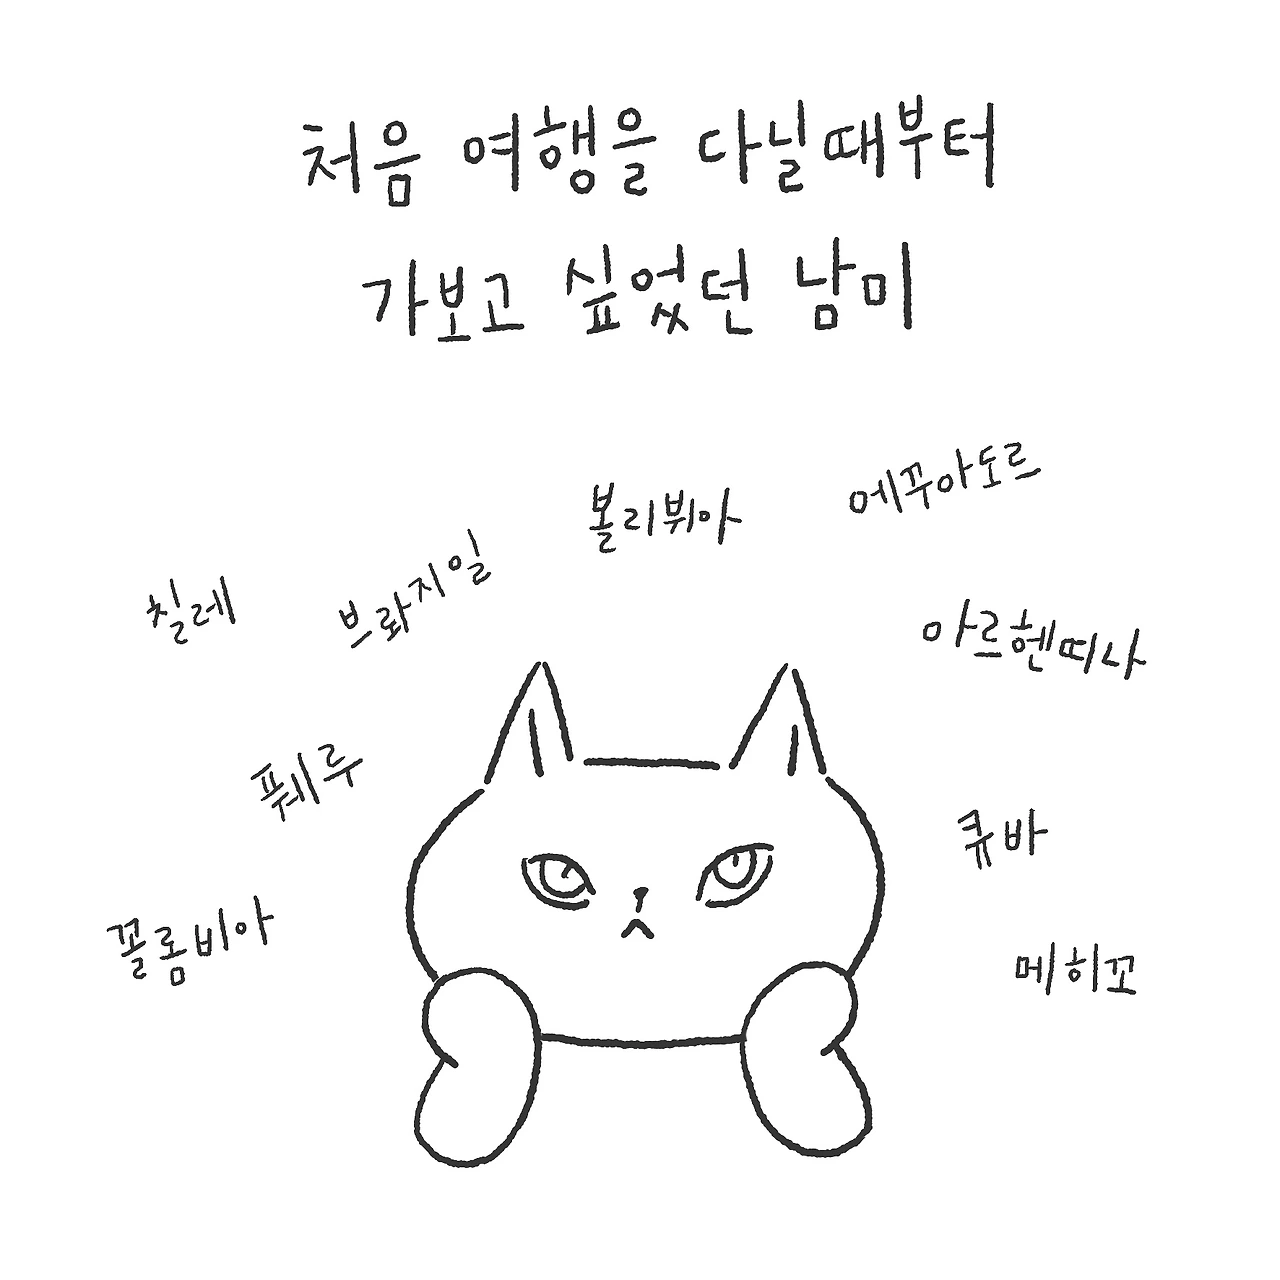 처음 여행을 다닐때부터
가보고 싶었던 남미
에꾸아도르
볼리뷔아
브롸지일
칠레
아르헨띠나
풰루
큐바
꼴롬비아
메히꼬